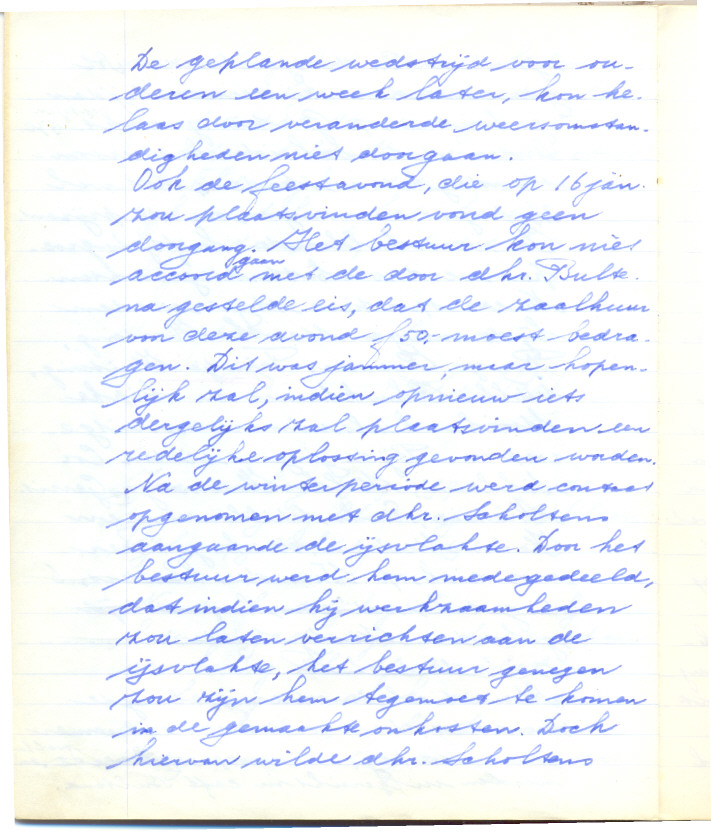 De geplande wedstrijd voor ou-
deren een week later, kon he-
laas door veranderde weersomstan-
digheden niet doorgaan.
Ook de feestavond, die op 16 jan.
zou plaatsvinden vond geen
doorgang. Het bestuur kon niet
geen
accoord met de door dhr. Bulte-
na gestelde eis, dat de zaalhuur
van deze avond f 50,- moest bedra-
gen. Dit was jammer, maar hopen-
lijk zal, indien opnieuw iets
dergelijks zal plaatsvinden een
redelijke oplossing gevonden worden.
Na de winterperiode werd contact
opgenomen met dhr. Scholtens
aangaande de ijsvlakte. Door het
bestuur werd hem medegedeeld,
dat indien hij werkzaamheden
zou laten verrichten aan de
ijsvlakte, het bestuur genegen
zou zijn hem tegemoet te komen
in de gemaakte onkosten. Doch
hiervan wilde dhr. Scholtens